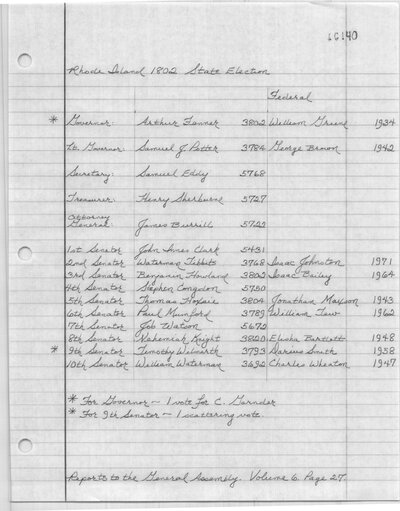 16140
Rhode Island 1802 State Election
Federal
* Governor: Arthur Fenner 3802 William Greene 1934
Lt. Governor: Samuel J. Potter 3784 George Brown 1942
Secretary: Samuel Eddy 5768
Treasurer: Henry Sherburne 5727
Attorney
General: James Burrill 5722
1st Senator John Innes Clark 5431
2nd Senator Waterman Tibbits 3768 Isaac Johnston 1971
3rd Senator Benjamin Howland 3802 Isaac Bailey 1964
4th Senator Stephen Congdon 5750
5th Senator Thomas Hoxsie 3804 Jonathan Maxson 1943
6th Senator Paul Mumford 3789 William Tew 1962
7th Senator Job Watson 5672
8th Senator Nehemiah Knight 3820 Elisha Bartlett 1948
* 9th Senator Timothy Wilmarth 3793 Darius Smith 1958
10th Senator William Waterman 3692 Charles Wheaton 1947
* For Governor - 1 vote for C. Garnder
* For 9th Senator - 1 scattering vote.
Reports to the General Assembly. Volume 6. Page 27.